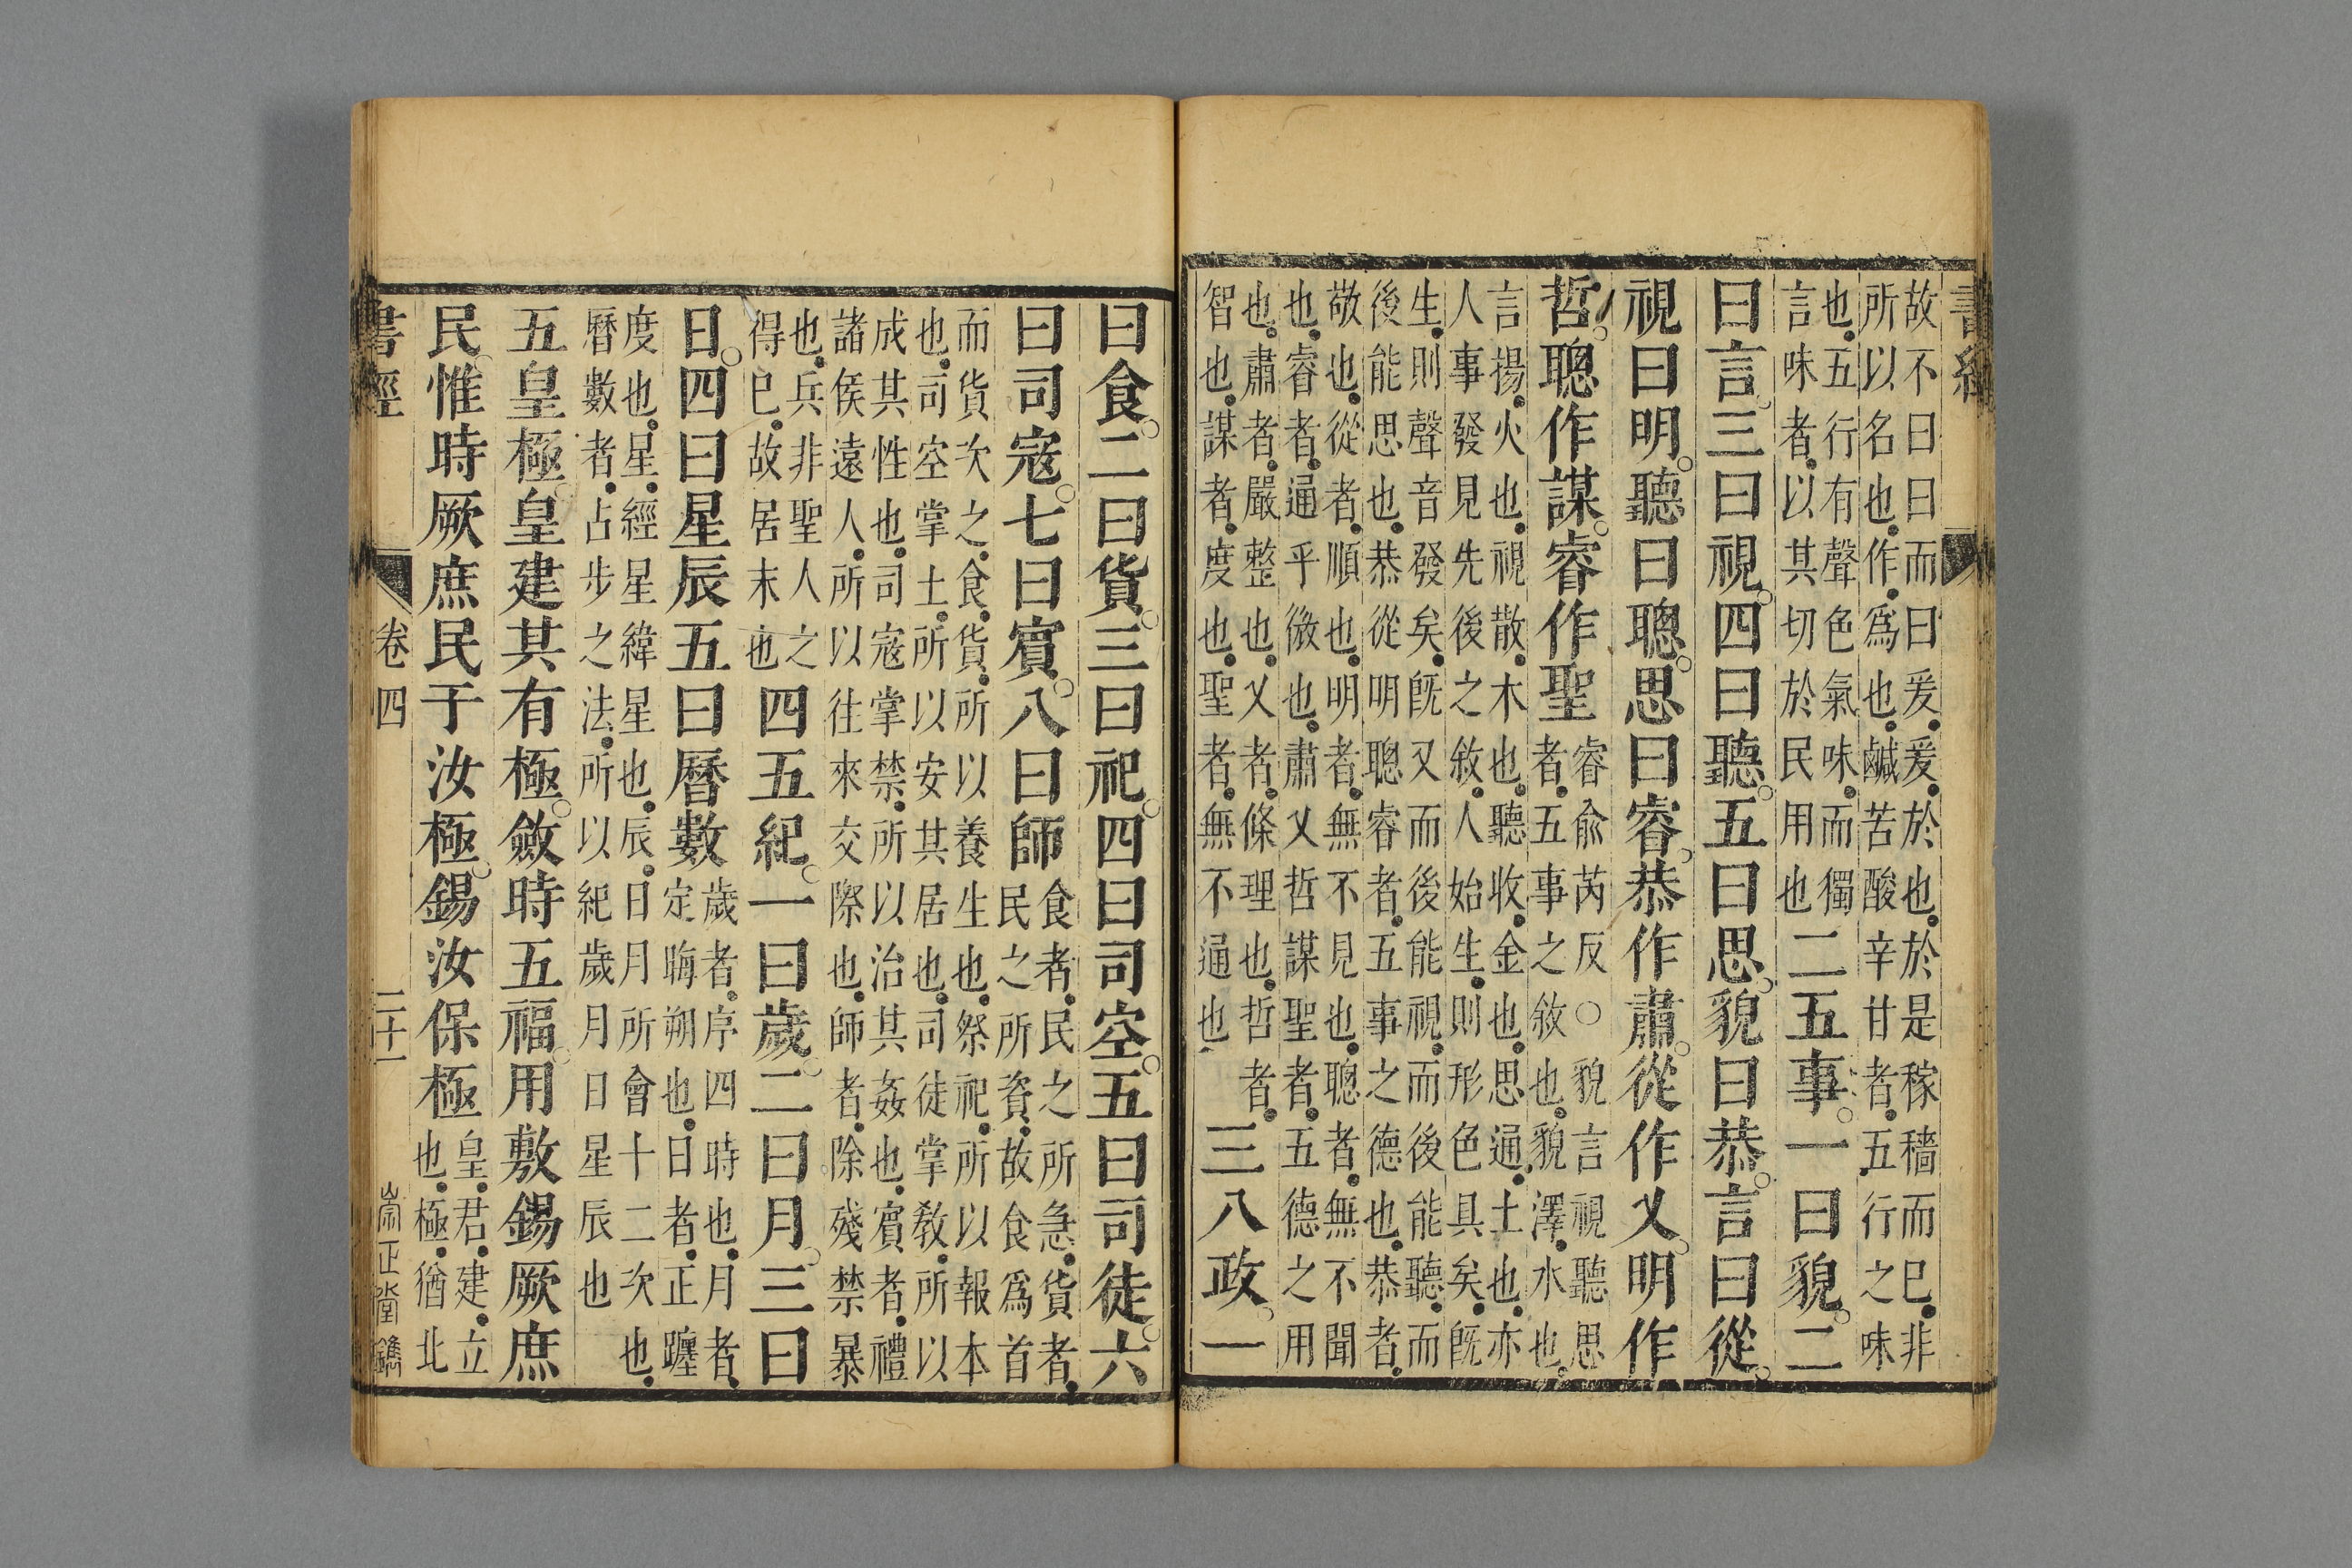 書經
故不曰曰而曰爰爰於也於是稼穡而已非
所以名也作爲也鹹苦酸辛甘者五行之味
也五行有聲色氣味而獨
言味者以其切於民用也
二五事一曰貌二
曰言三曰視四曰聽五曰思貌曰恭言曰從
視曰明聽曰聰思曰睿恭作肅從作乂明作
哲聰作謀睿作聖
睿兪芮反○貌言視聽思
者五事之敘也貌澤水也
言揚火也視散木也聽收金也思通土也亦
人事發見先後之敘人始生則形色具矣旣
生則聲音發矣旣又而後能視而後能聽而
後能思也恭從明聰睿者五事之德也恭者
敬也從者順也明者無不見也聰者無不聞
也睿者通乎微也肅乂哲謀聖者五德之用
也肅者嚴整也乂者條理也哲者
智也謀者度也聖者無不通也
三八政一
曰食二曰貨三曰祀四曰司空五曰司徒六
曰司寇七曰賓八曰師
食者民之所急貨者
民之所資故食爲首
而貨次之食貨所以養生也祭祀所以報本
也司空掌土所以安其居也司徒掌敎所以
成其性也司寇掌禁所以治其姦也賓者禮
諸侯遠人所以往來交際也師者除殘禁暴
也兵非聖人之
得已故居末也
四五紀一曰歲二曰月三曰
日四曰星辰五曰曆數
歲者序四時也月者
定晦朔也日者正躔
度也星經星緯星也辰日月所會十二次也
曆數者占步之法所以紀歲月日星辰也
五皇極皇建其有極斂時五福用敷錫厥庶
民惟時厥庶民于汝極錫汝保極
皇君建立
也極猶北
書經
卷四
二十一
崇正堂鐫